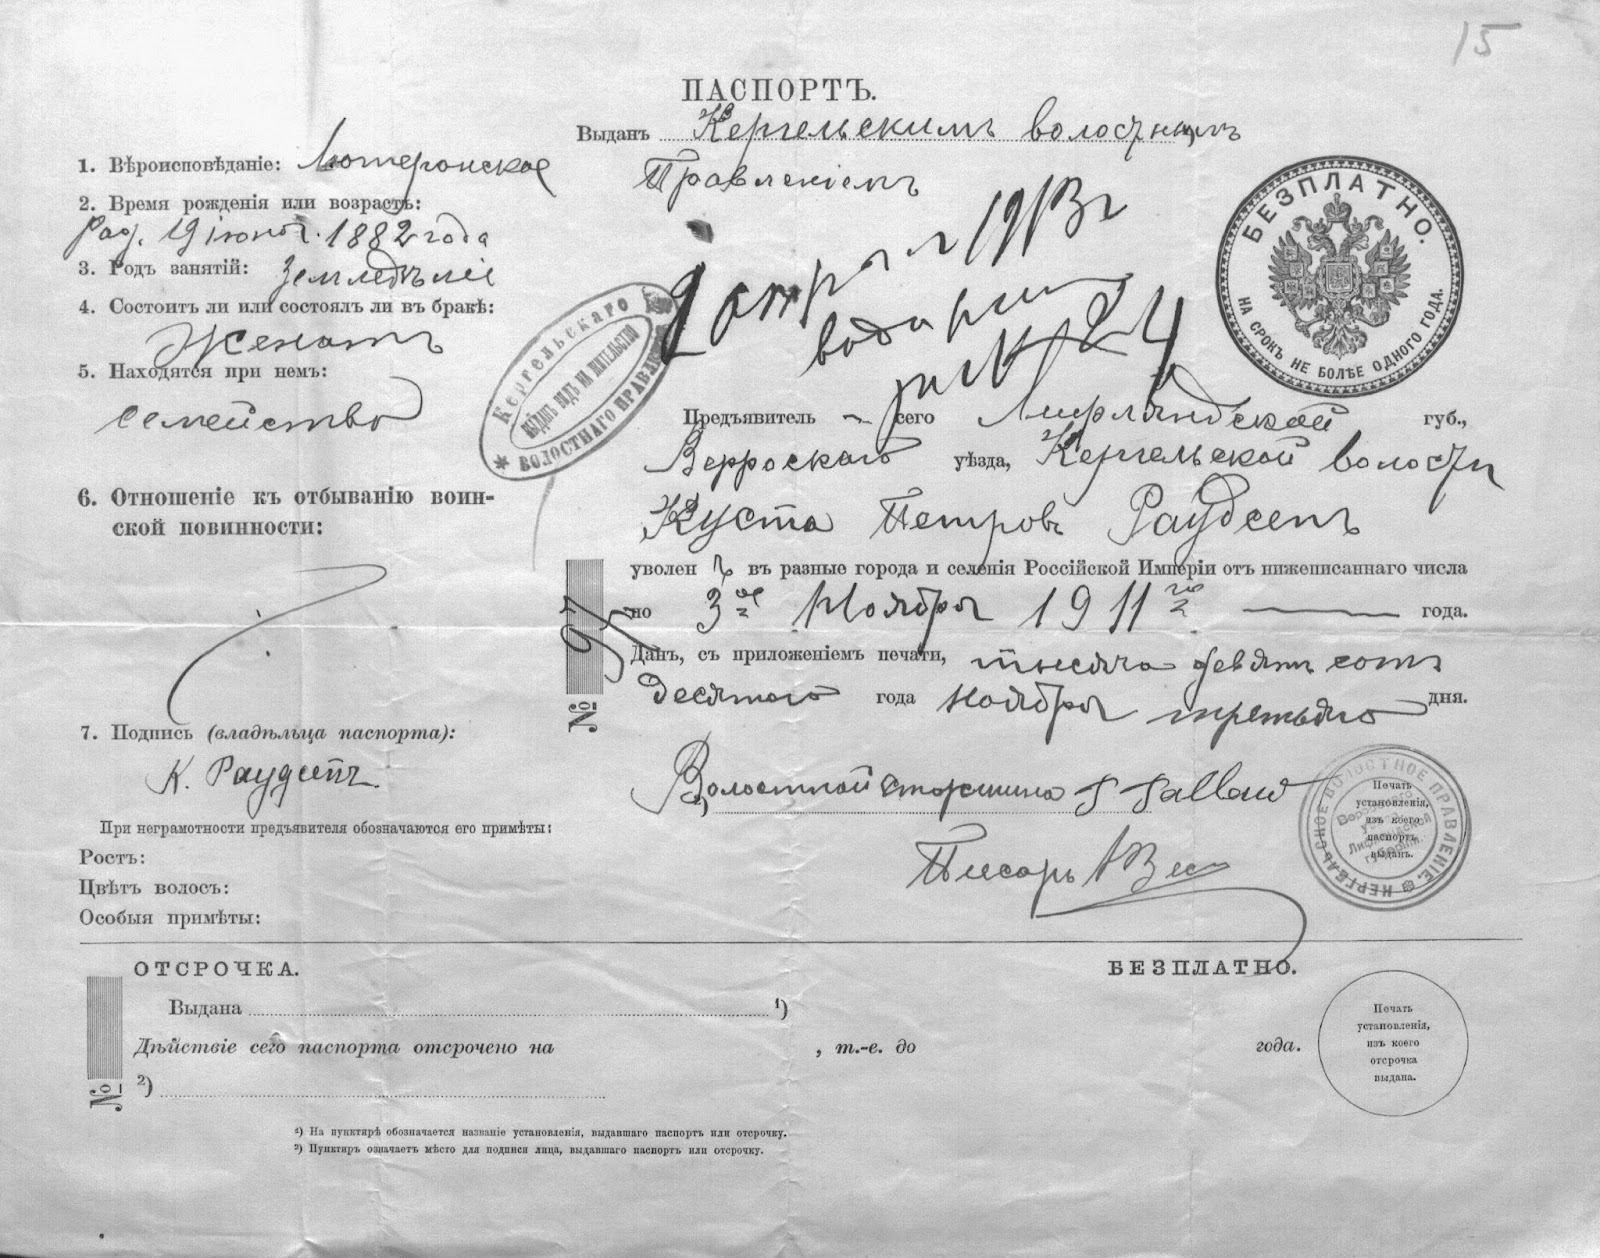 15
ПАСПОРТЪ.
Выданъ Кергельскимъ волостнымъ
Правленіемъ
1. Вѣроисповѣданіе: Лютеранское
2. Время рожденія или возрастъ:
Род. 19 іюня 1882 года
3. Родъ занятій: Земледѣліе
4. Состоитъ ли или состоялъ ли въ бракѣ:
Женатъ
5. Находятся при немъ:
семейство
6. Отношеніе къ отбыванію воин-
ской повинности:
7. Подпись (владѣльца паспорта):
К. Раудсепъ
При неграмотности предъявителя обозначаются его примѣты:
Ростъ:
Цвѣтъ волосъ:
Особыя примѣты:
Кергельскаго
ВОЛОСТНАГО ПРАВЛЕНІЯ
ВЫДАНЪ ВИДЪ НА ЖИТЕЛЬСТВО
1913 г
24
БЕЗПЛАТНО.
НА СРОКЪ НЕ БОЛѢЕ ОДНОГО ГОДА.
Предъявитель сего Лифляндской губ.,
Верроскаго уѣзда, Кергельской волости
Куста Петровъ Раудсепъ
уволенъ въ разные города и селенія Россійской Имперіи отъ нижеписаннаго числа
по 3ое Ноября 1911го года.
Данъ, съ приложеніемъ печати, тысяча девятьсотъ
десятаго года Ноября третьяго дня.
№ 97
Волостной старшина
Писарь
КЕРГЕЛЬСКОЕ ВОЛОСТНОЕ ПРАВЛЕНІЕ.
Печать
установленія,
изъ коего
паспортъ
выданъ.
ОТСРОЧКА.
БЕЗПЛАТНО.
Выдана 1)
Дѣйствіе сего паспорта отсрочено на , т.-е. до года.
№
2)
Печать
установленія,
изъ коего
отсрочка
выдана.
1) На пунктирѣ обозначается названіе установленія, выдавшаго паспортъ или отсрочку.
2) Пунктиръ означаетъ мѣсто для подписи лица, выдавшаго паспортъ или отсрочку.